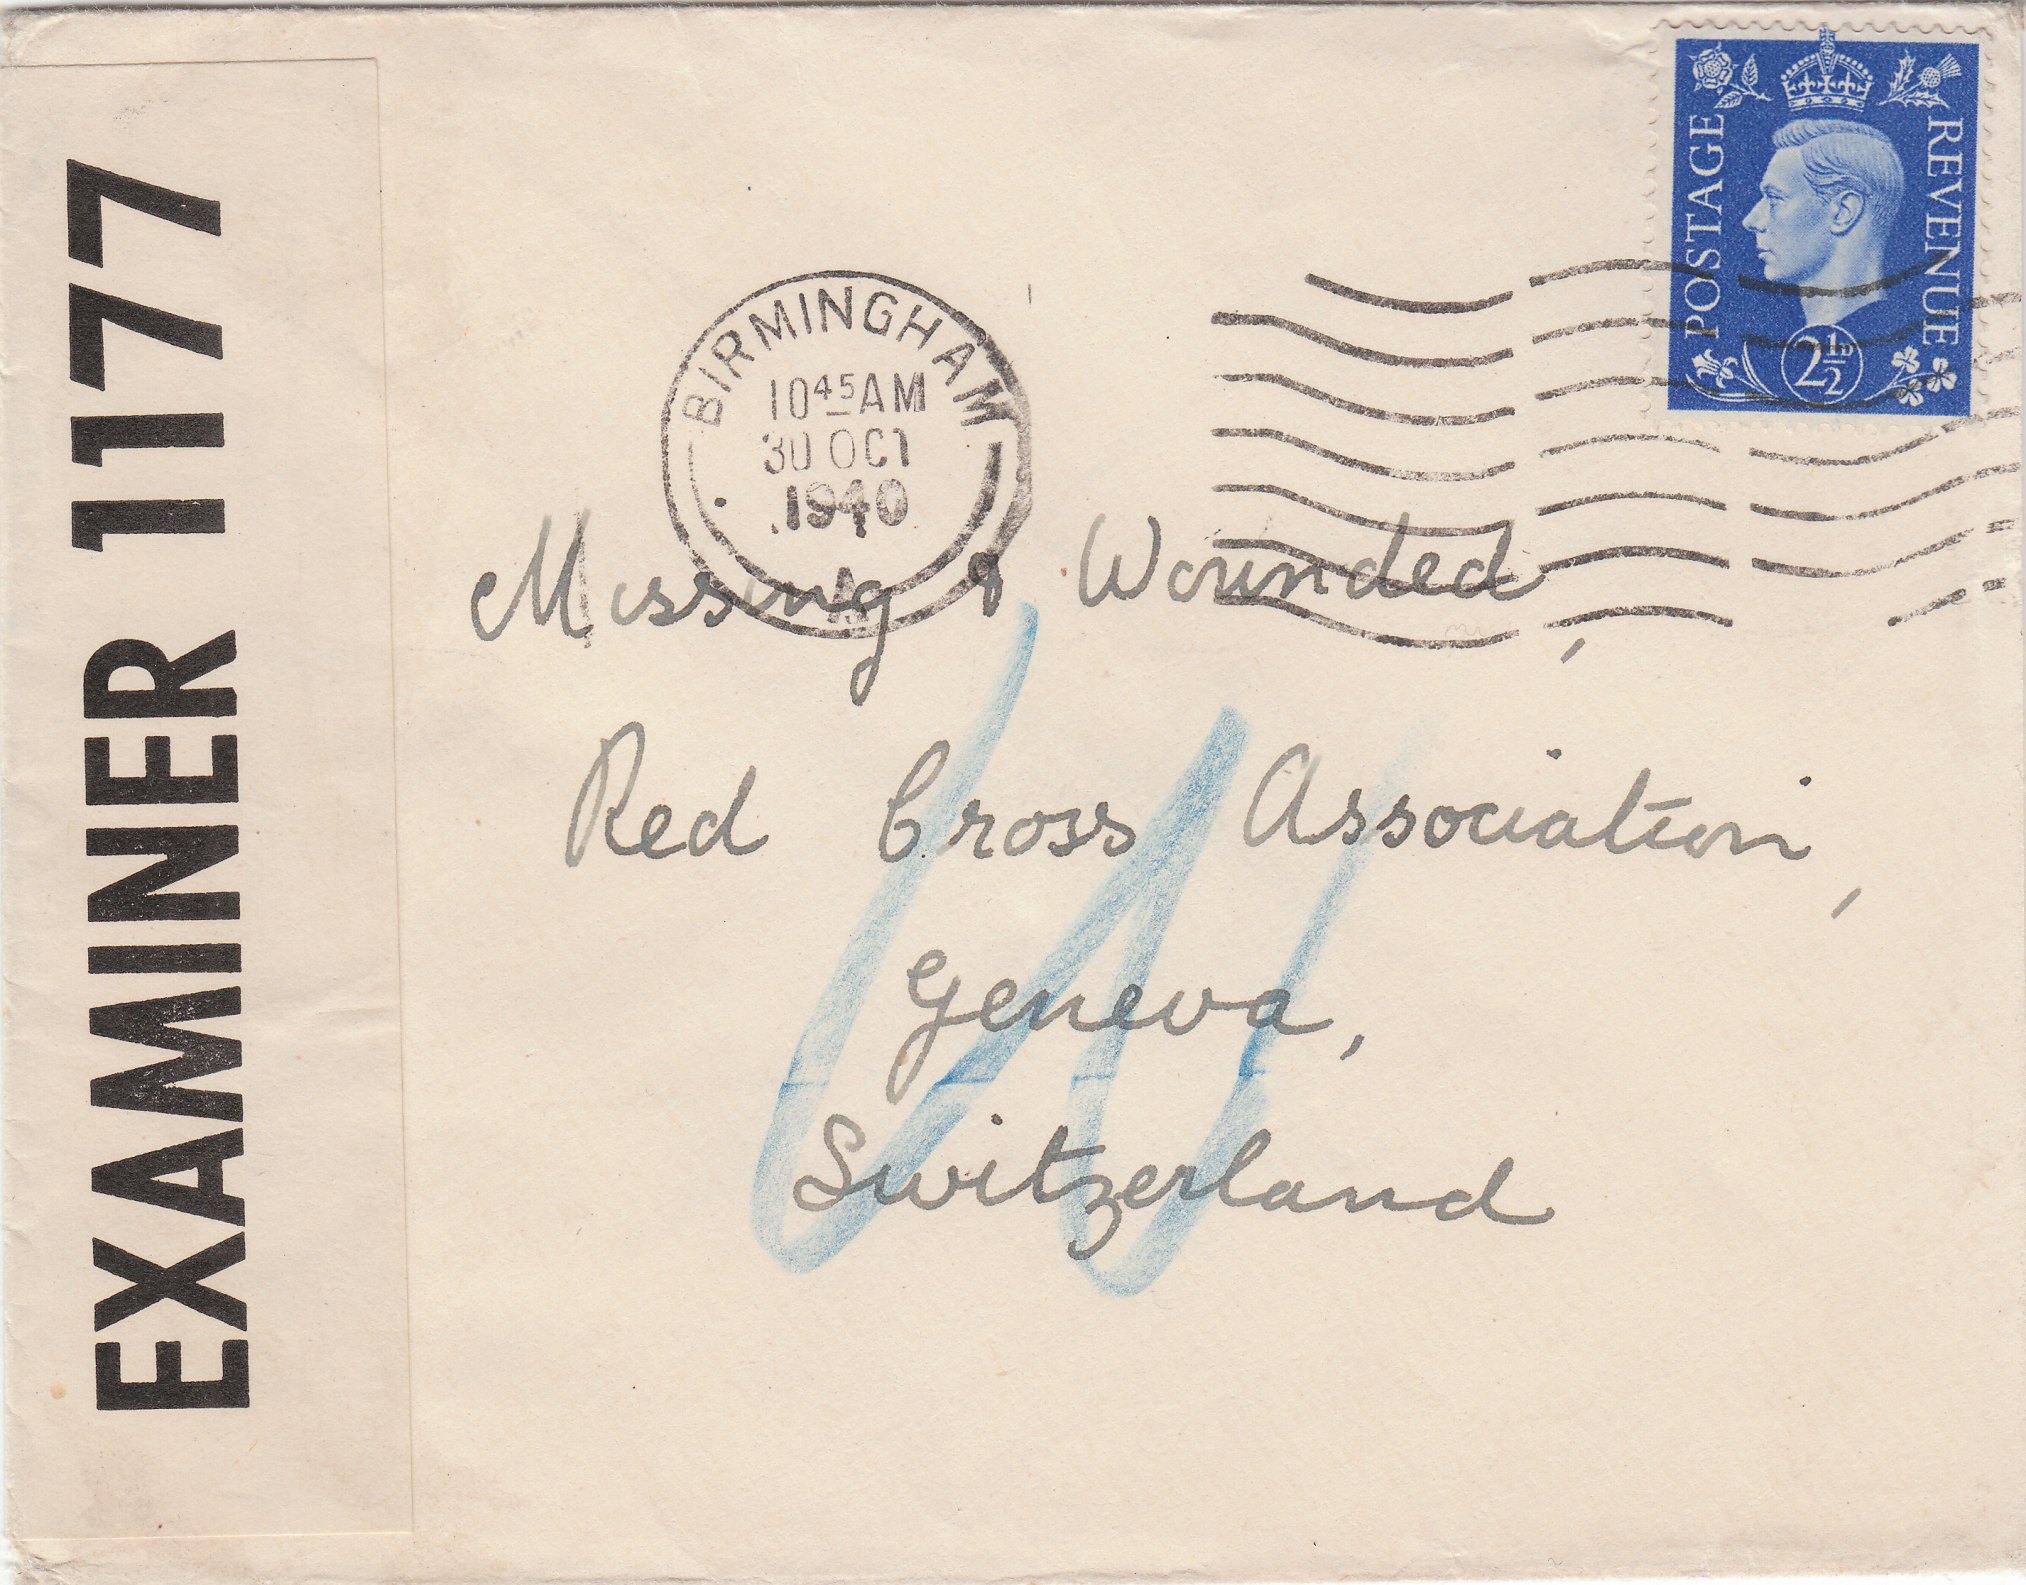 EXAMINER 1177
POSTAGE
REVENUE
2½D
BIRMINGHAM
10 45 AM
30 OCT
1940
A
Missing & Wounded,
Red Cross Association,
Geneva,
Switzerland